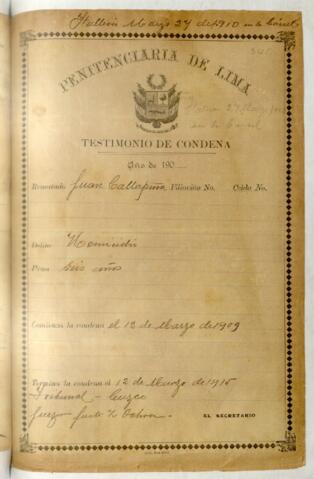 Falleció Marzo 27 de 1910 en la Carcel
PENITENCIARIA DE LIMA
27 Marzo
en la Carcel
TESTIMONIO DE CONDENA
Año de 190
Rematado Juan Callapiña Filiación No. Celda No.
Delito Homicidio
Pena seis años
Comienza la condena el 12 de Marzo de 1909
Termina la condena el 12 de Marzo de 1915
Tribunal - Cuzco
Juzgo Justo Z Ochoa.
EL SECRETARIO